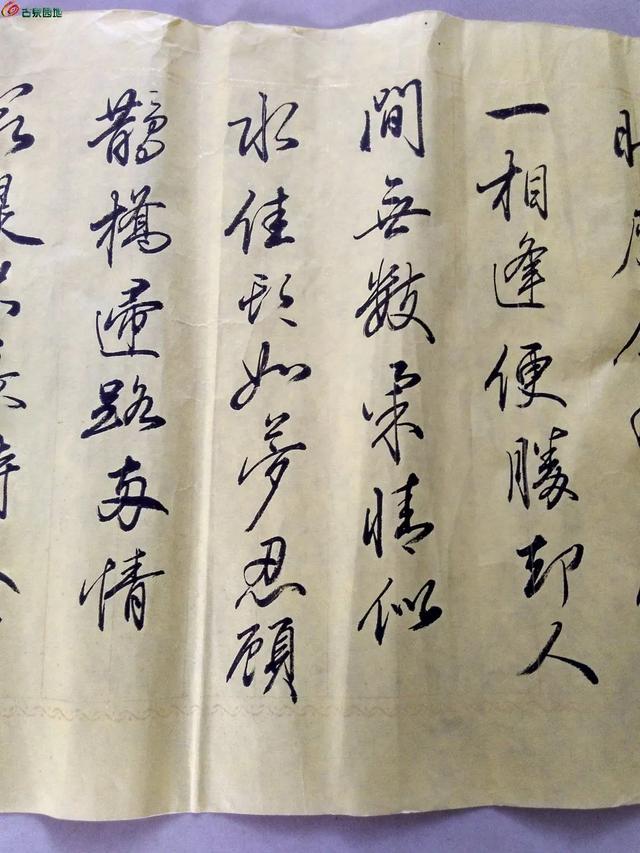 古泉园地
一相逢便勝却人
間無數柔情似
水佳期如夢忍顧
鵲橋歸路両情